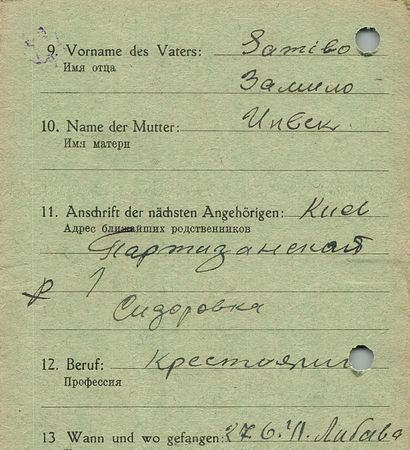 9. Vorname des Vaters:
Имя отца
10. Name der Mutter:
Имя матери
11. Anschrift der nächsten Angehörigen: Киев
Адрес ближайших родственников
Партизанская
1
Сидоровка
12. Beruf: Крестьянин
Профессия
13 Wann und wo gefangen: 27.6.41. Либава